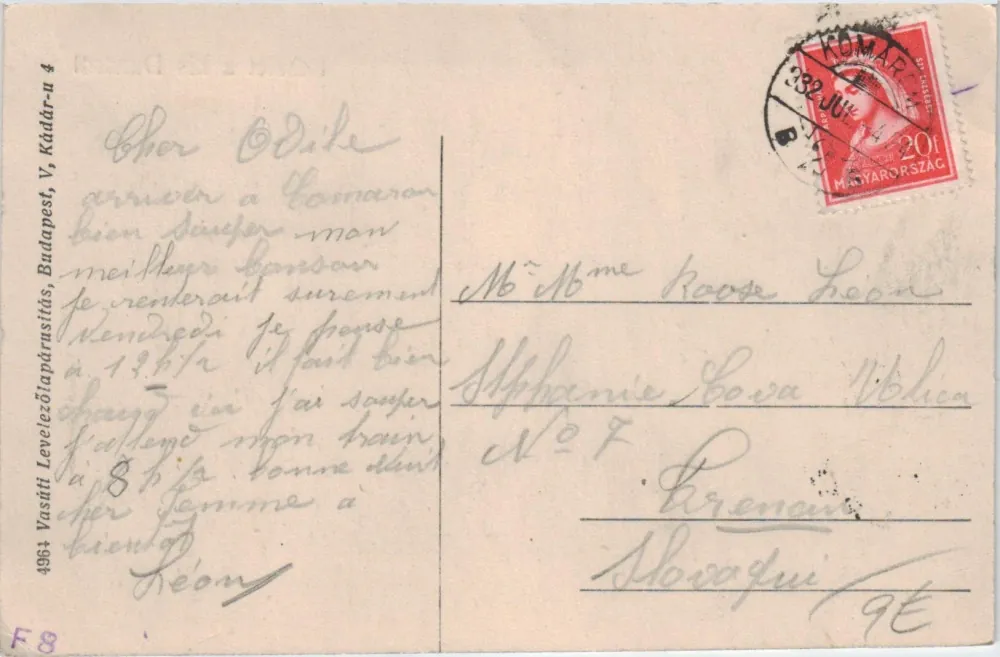 4964 Vasúti Levelezőlapárusítás, Budapest, V, Kádár-u 4
Cher Odile
arriver a Comaron
bien souper mon
meilleur bonsoir
je renterait surement
vendredi je pense
a 12 h 1/2 il fait bien
chaud ici j'ai souper
j'attend mon train
à 8 h 1/2 bonne nuit
cher femme à
bientot
Léon
F 8
KOMÁROM
932 JUN
B
20f
MAGYARORSZÁG
Mr Mme Roose Léon
Stphanie Cova Ulica
No 7
Trencin
Slovaqui